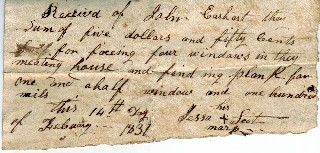 Received of John Earhart the
Sum of five dollars and fifty Cents
for faceing four windows in the
meeting house and find my plank for
one one ahalf window and one hundred
mils
this 14th Day his
of Febuary 1831 Jessa + Scot
mark